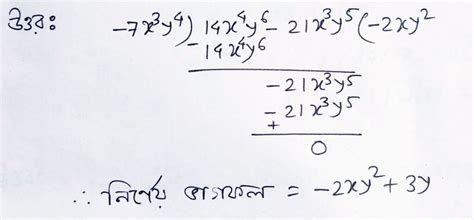 উত্তরঃ -7x³y⁴) 14x⁴y⁶ - 21x³y⁵ (-2xy²
-14x⁴y⁶
-21x³y⁵
-21x³y⁵
+
0
∴ নির্ণেয় ভাগফল = -2xy² + 3y